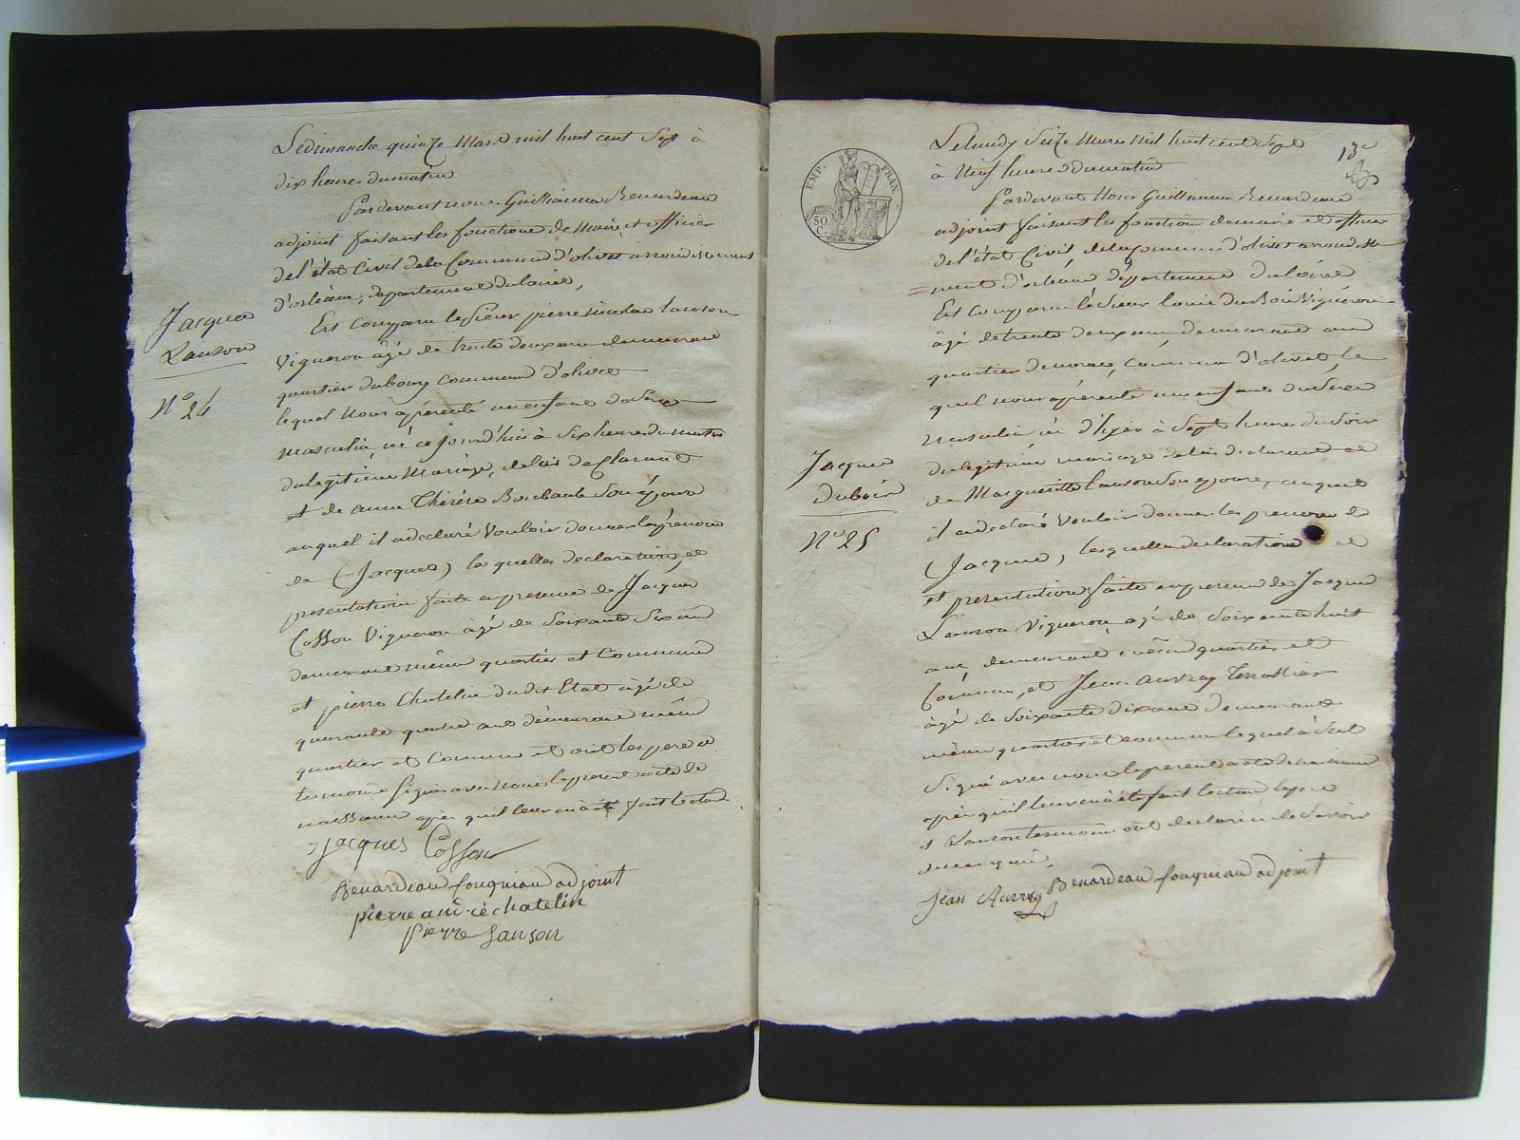 Le dimanche quinze Mars mil huit cent Sept à
dix heures du matin
Pardevant nous Guillaume Benardeau
adjoint faisant les fonctions de Maire et officier
de l'état Civil de la Commune d'olivet arrondissement
d'orléans, departement du loiret,
Est comparu le sieur pierre nicolas lanson
Vigneron âgé de trente deux ans demeurant
quartier du bourg commune d'olivet
lequel nous à présenté un enfant du sexe
masculin né ce jourd'hui à Six heures du matin
du legitime Mariage, de lui declarant
et de anne Thérése Bouchault Son épouse
auquel il a declaré Vouloir donner le prénom
de (Jacques) les quelles declarations, et
presentation faite en presence de Jacques
Cosson Vigneron âgé de Soixante Six ans
demeurant même quartier et Commune
et pierre Chatelin dudit Etat âgé de
quarante quatre ans demeurant même
quartier et Commune et ont les pere et
temoins signés avec nous le present acte de
naissance après qu'il leur en à été fait lecture
Jacques
Lanson
N° 24
jacques Cosson
Benardeau fouqniau adjoint
pierre andré chatelin
pierre lanson
EMP. FRAN.
50 C.
13e
Le lundy Seize Mars mil huit cent Sept
à Neuf heures du matin
Pardevant Nous Guillaume Benardeau
adjoint faisant les fonctions de maire et officier
de l'état Civil, de la Commune d'olivet arrondisse
ment d'orléans departement du loiret
Est Comparu le Sieur louis Dubois Vigneron
âgé de trente deux ans demeurant au
quartier de commune d'olivet, le
quel nous à présenté un enfant du Sexe
masculin né d'hyer à Sept heures du Soir
du legitime mariage de lui declarant et
de Margueritte lanson Son epouse, auquel
il a declaré Vouloir donner les prenoms de
(Jacques), lesquelles declarations et
et presentation faite en presence de Jacques
Lanson Vigneron agé de Soixante huit
ans demeurant même quartier et
Commune, et Jean auvray Terrassier
âgé de Soixante dix ans demeurant
même quartier et commune lequel à Seul
Signé avec nous le present acte de naissance
après qu'il leur en à été fait lecture le pere
et lanson temoin ont declaré ne le Savoir
Jacques
Dubois
N° 25
Jean Auvray Benardeau fouqniau adjoint